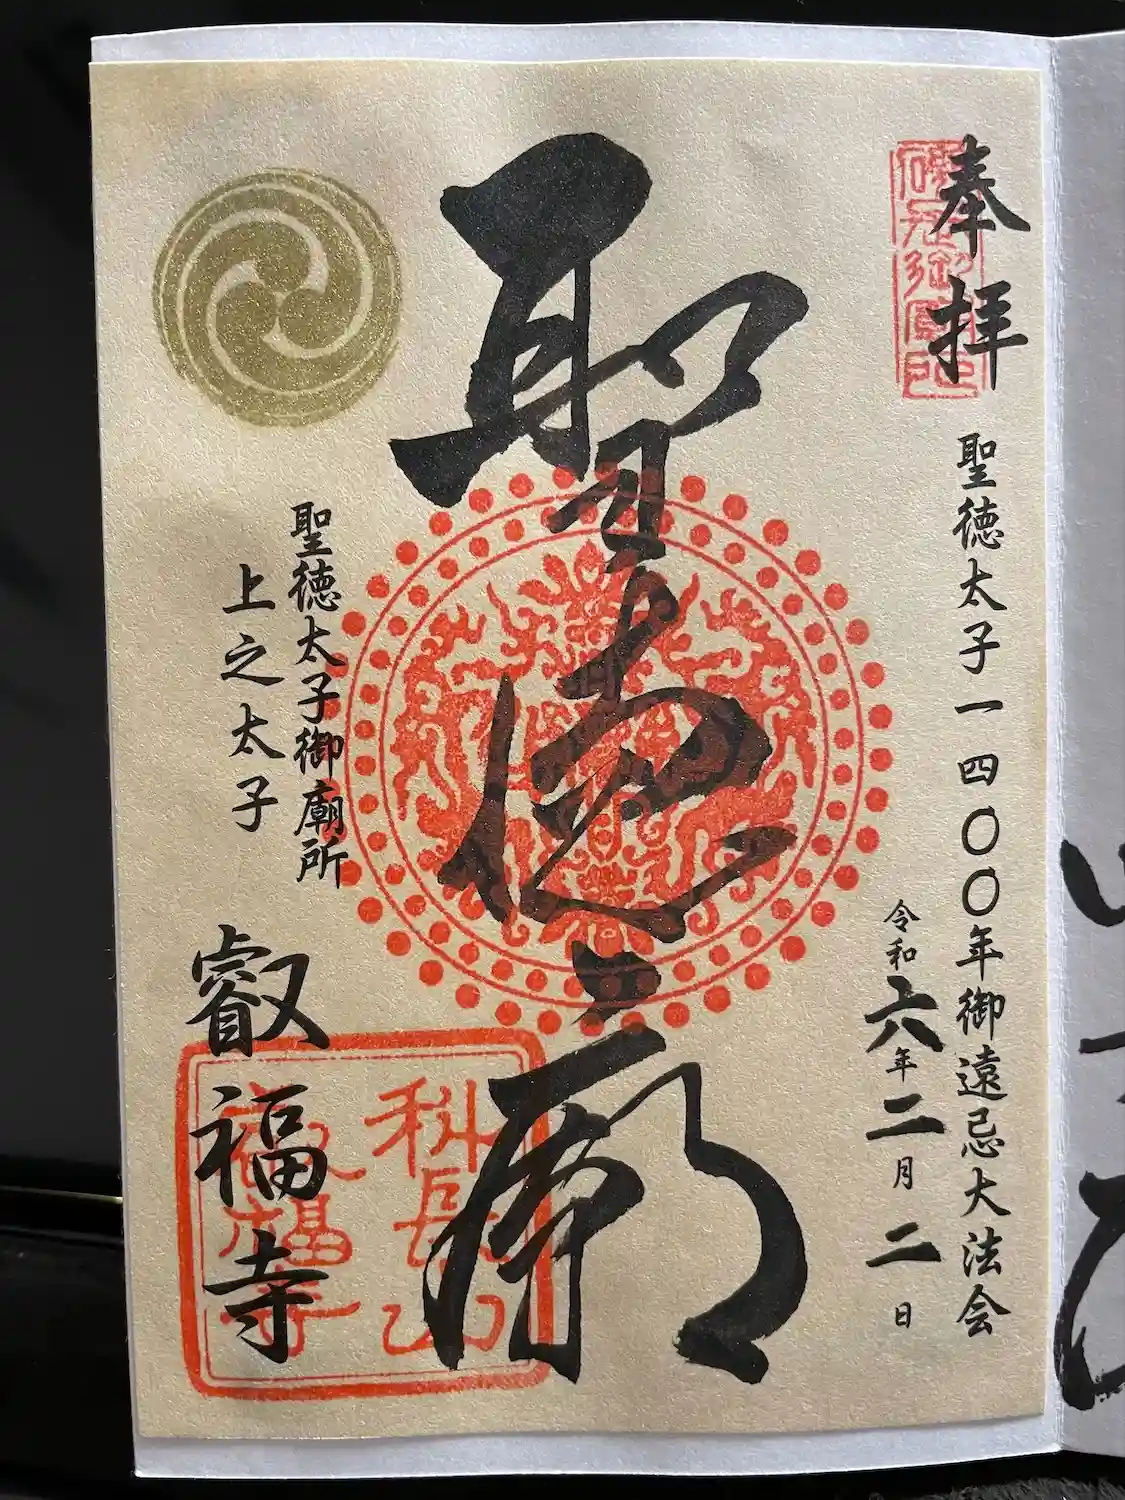 奉拝
聖徳太子一四〇〇年御遠忌大法会
令和六年二月二日
聖徳廟
聖徳太子御廟所
上之太子
叡福寺
科長山
叡福寺